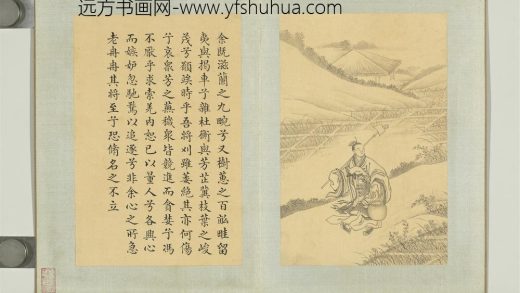 远方书画网-www.yfshuhua.com
余既滋蘭之九畹兮又樹蕙之百畝畦留
夷與揭車兮雜杜衡與芳芷冀枝葉之峻
茂兮願竢時乎吾將刈雖萎絶其亦何傷
兮哀衆芳之蕪穢衆皆競進而貪婪兮馮
不厭乎求索羌內恕己以量人兮各興心
而嫉妒忽馳騖以追逐兮非余心之所急
老冉冉其將至兮恐脩名之不立